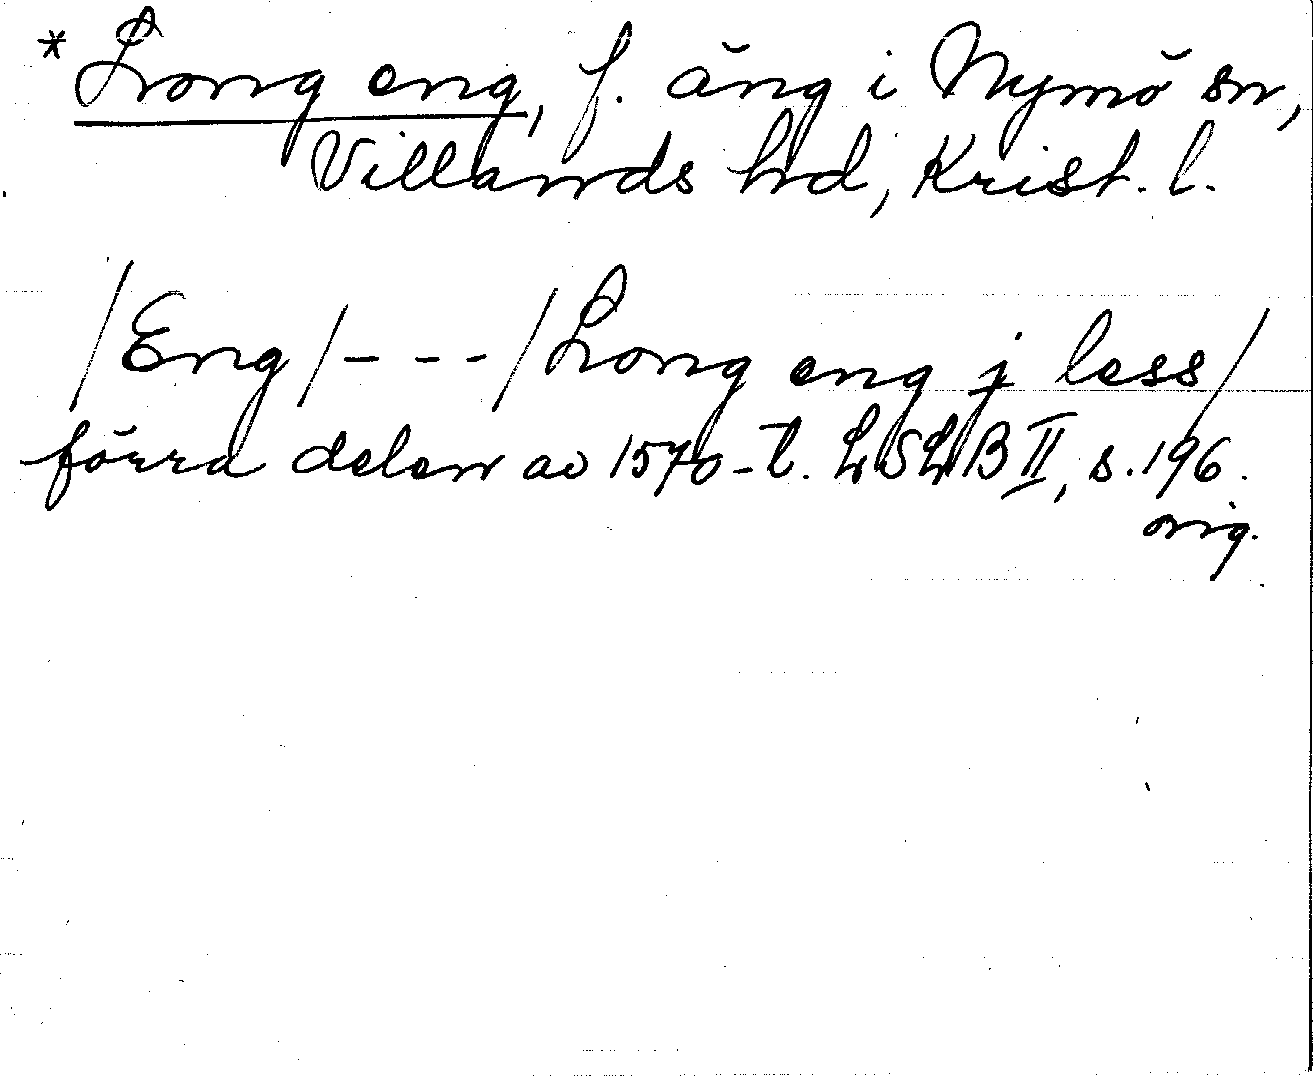 *Long eng, f. äng i Nymö sn,
Villands hd, Krist. l.
/Eng/- - - -/Long eng j less/
förra delen av 1570-t. LSLB II, s. 196.
orig.